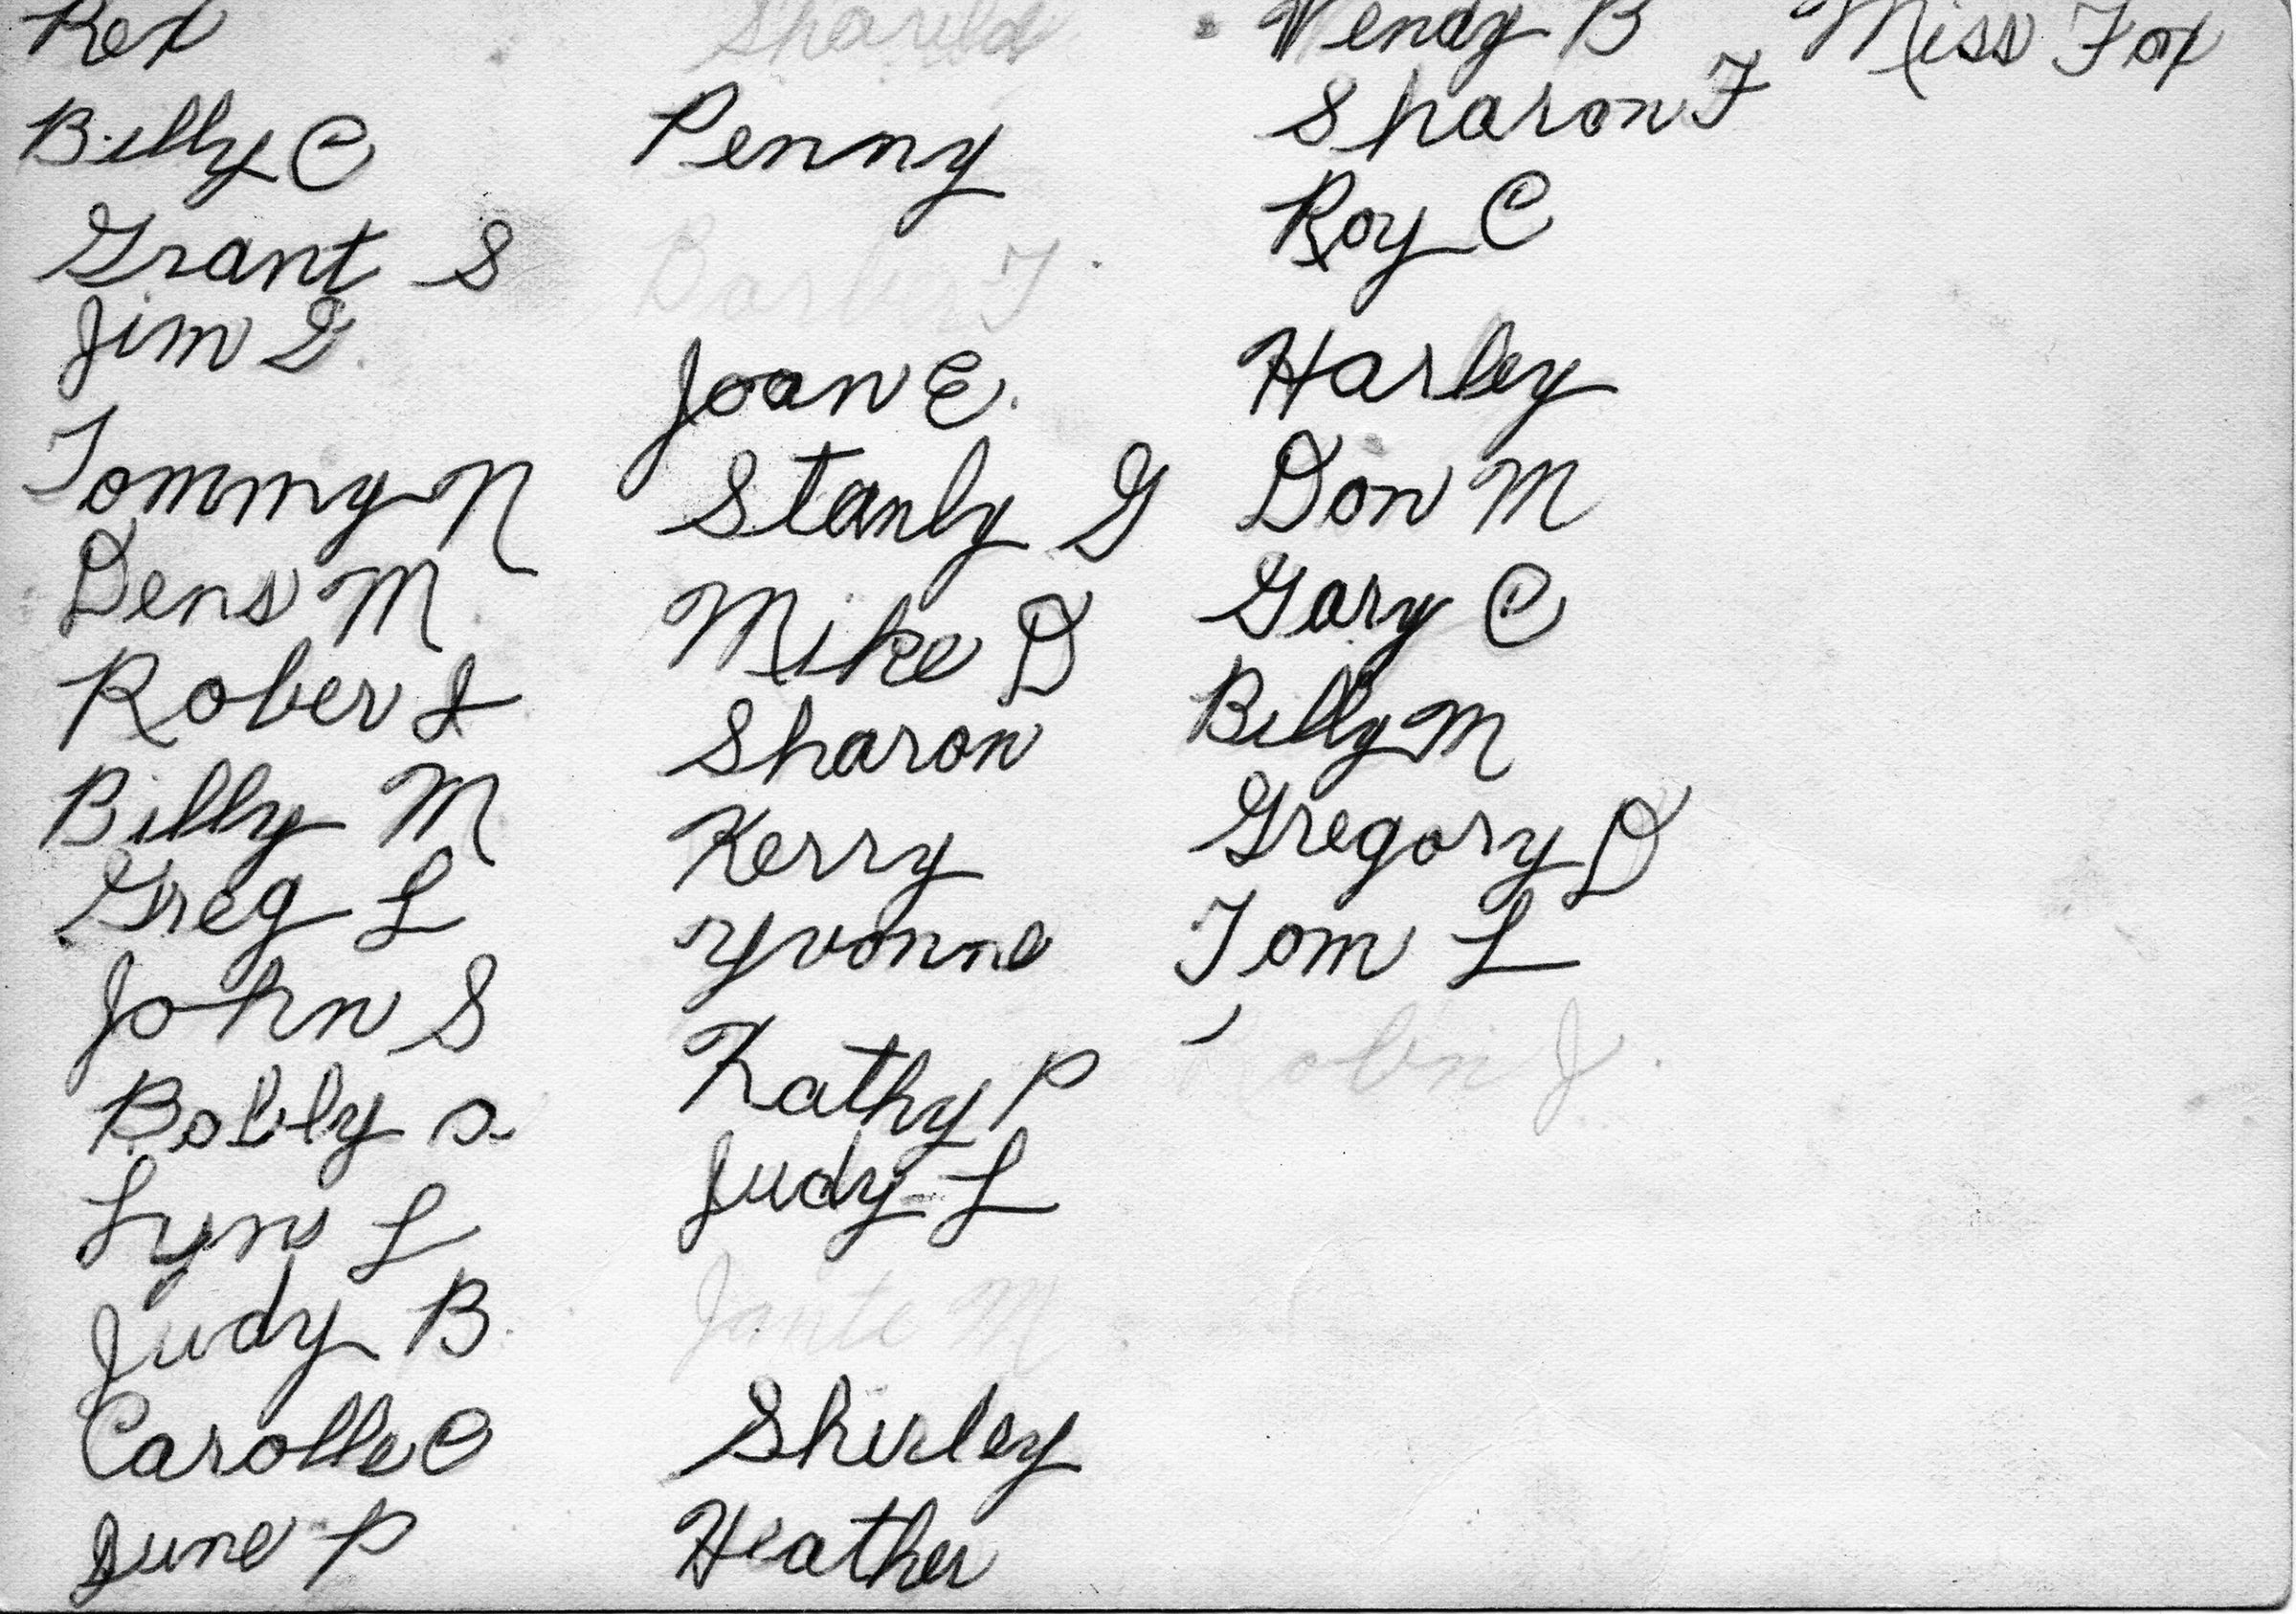 Rex
Billy C
Grant S
Jim G
Tommy N
Dens M
Rober
Billy M
Greg L
John S
Bobby
Lynn L
Judy B
Carolle C
June P
Penny
Joan E.
Stanly G
Mike D
Sharon
Kerry
Yvonne
Kathy P
Judy L
M
Shirley
Heather
Wendy B
Sharon F
Roy C
Harley
Don M
Gary C
Billy M
Gregory D
Tom L
Robin J.
Miss Fox